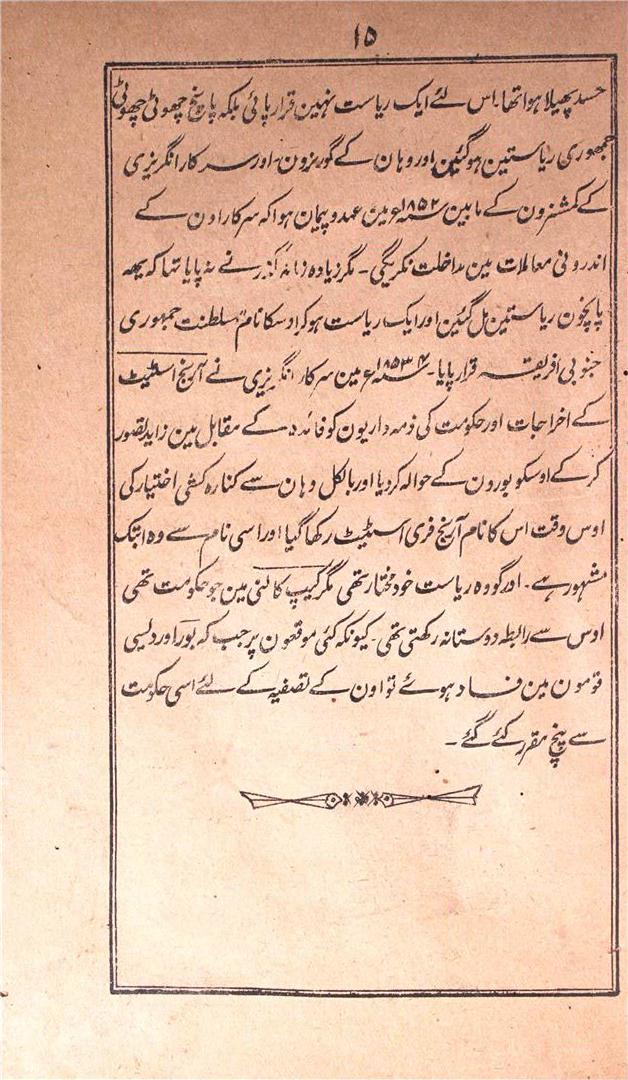 ۱۵
حسد پھیلا ہوا تھا۔ اس لئے ایک ریاست نہین قرار پائی بلکہ پانچ چھوٹی چھوٹی
جمھوری ریاستین ہو گئین اور وہان کے گورنرون اور سرکار انگریزی
کے کمشنرون کے مابین ۱۸۵۲ء مین عہد و پیمان ہوا کہ سرکار اون کے
اندرونی معاملات مین مداخلت نکریگی۔ مگر زیادہ زمانہ گذرنے نہ پایا تھا کہ یہہ
پانچون ریاستین مل گئین اور ایک ریاست ہو کر اوسکا نام سلطنت جمہوری
جنوبی افریقہ قرار پایا۔ ۱۸۵۳ء مین سرکار انگریزی نے آرینج اسٹیٹ
کے اخراجات اور حکومت کی ذمہ داریون کو فائدہ کے مقابل مین زاید تصور
کر کے اوسکو بورون کے حوالہ کر دیا اور بالکل وہان سے کنارہ کشی اختیار کی
اوس وقت اس کا نام آرینج فری اسٹیٹ رکھا گیا اور اسی نام سے وہ ابتک
مشہور ہے۔ اور گو وہ ریاست خود مختار تھی مگر کیپ کالنی مین جو حکومت تھی
اوس سے رابطہ دوستانہ رکھتی تھی۔ کیونکہ کئی موقعون پر جب کہ بور اور دیسی
قومون مین فساد ہوئے تو اون کے تصفیہ کے لئے اسی حکومت
سے پنچ مقرر کئے گئے۔